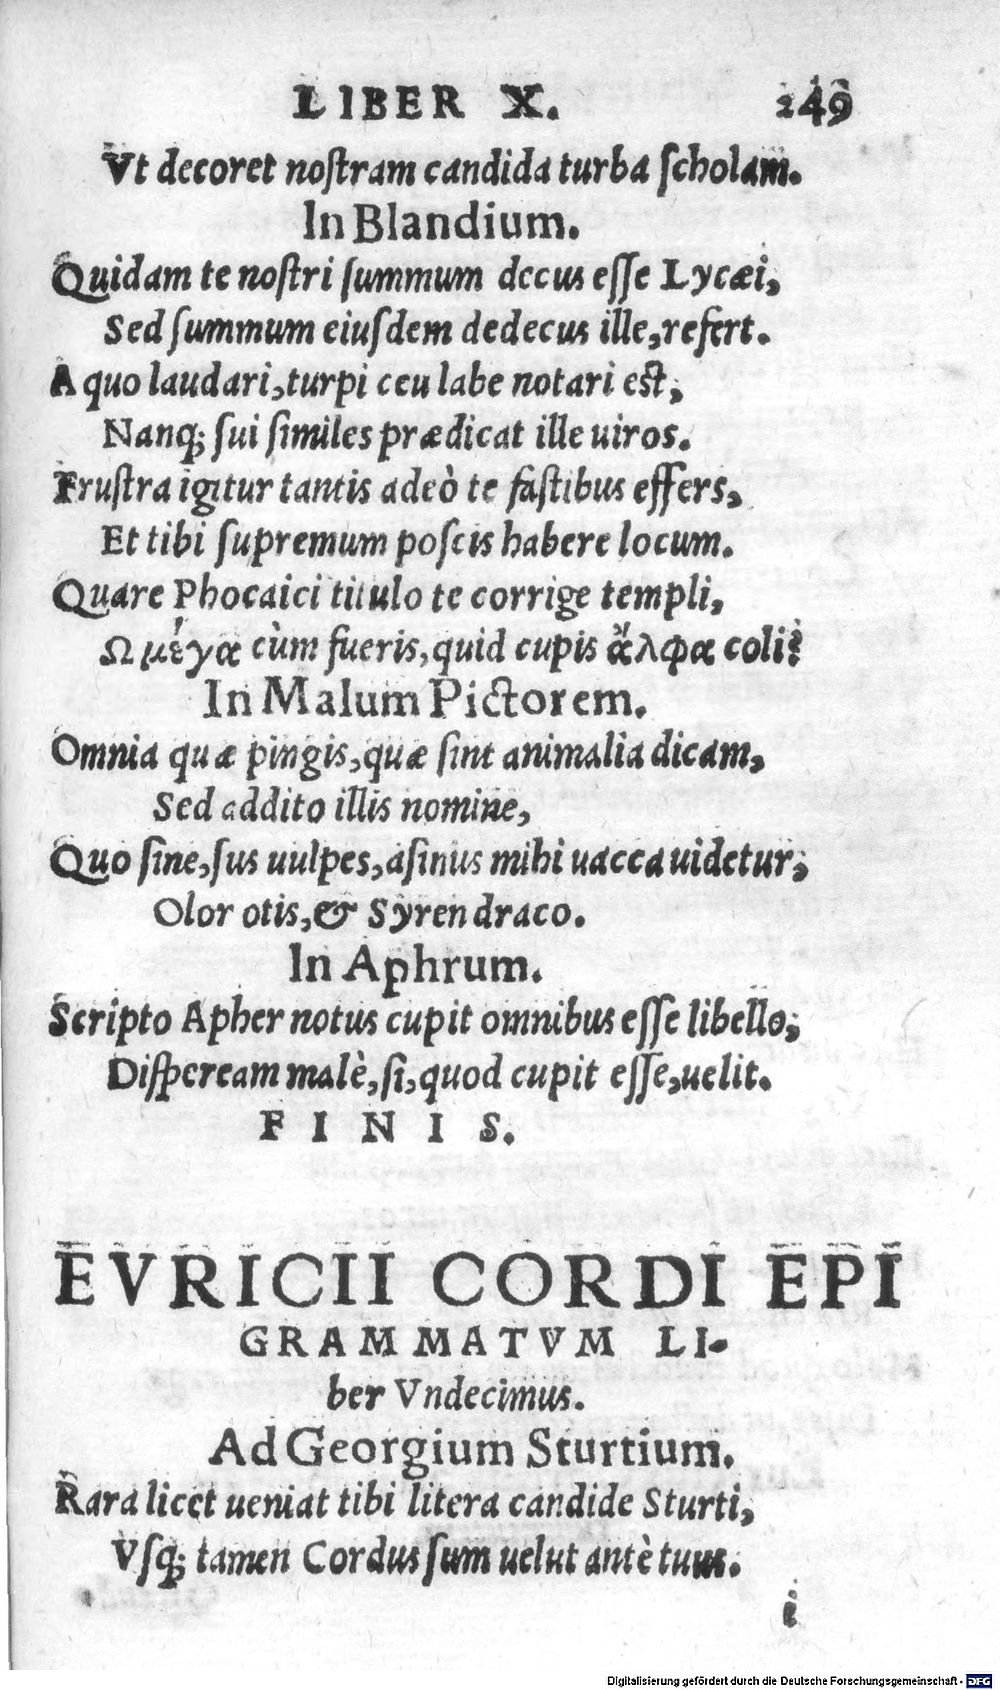 LIBER X. 249
Vt decoret noſtram candida turba ſcholam.
In Blandium.
Quidam te noſtri ſummum decus eſſe Lycæi,
Sed ſummum eiuſdem dedecus ille, refert.
A quo laudari, turpi ceu labe notari est,
Nanq; ſui ſimiles prædicat ille uiros.
Fruſtra igitur tantis adeò te faſtibus effers,
Et tibi ſupremum poſcis habere locum.
Quare Phocaici titulo te corrige templi,
Ω μέγα cùm fueris, quid cupis ἄλφα coli?
In Malum Pictorem.
Omnia quæ pingis, quæ ſint animalia dicam,
Sed addito illis nomine,
Quo ſine, ſus uulpes, aſinus mihi uacca uidetur,
Olor otis, & Syren draco.
In Aphrum.
Scripto Apher notus cupit omnibus eſſe libello,
Diſpeream malè, ſi, quod cupit eſſe, uelit.
FINIS.
EVRICII CORDI EPI
GRAMMATVM LI-
ber Vndecimus.
Ad Georgium Sturtium.
Rara licet ueniat tibi litera candide Sturti,
Vſq; tamen Cordus ſum uelut antè tuus.
i
Digitalisierung gefördert durch die Deutsche Forschungsgemeinschaft - DFG